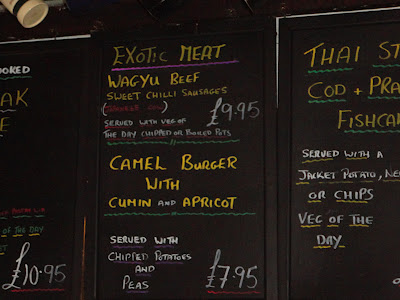 OOKED
AK
E
OF THE DAY
£10.95
EXOTIC MEAT
WAGYU BEEF
SWEET CHILLI SAUSAGES
£9.95
SERVED WITH VEG OF
THE DAY CHIPPED OR BOILED POTS
CAMEL BURGER
WITH
CUMIN AND APRICOT
SERVED WITH
CHIPPED POTATOES
AND
PEAS
£7.95
THAI ST
COD + PRA
FISHCA
SERVED WITH A
JACKET POTATO, NE
OR CHIPS
VEG OF THE
DAY